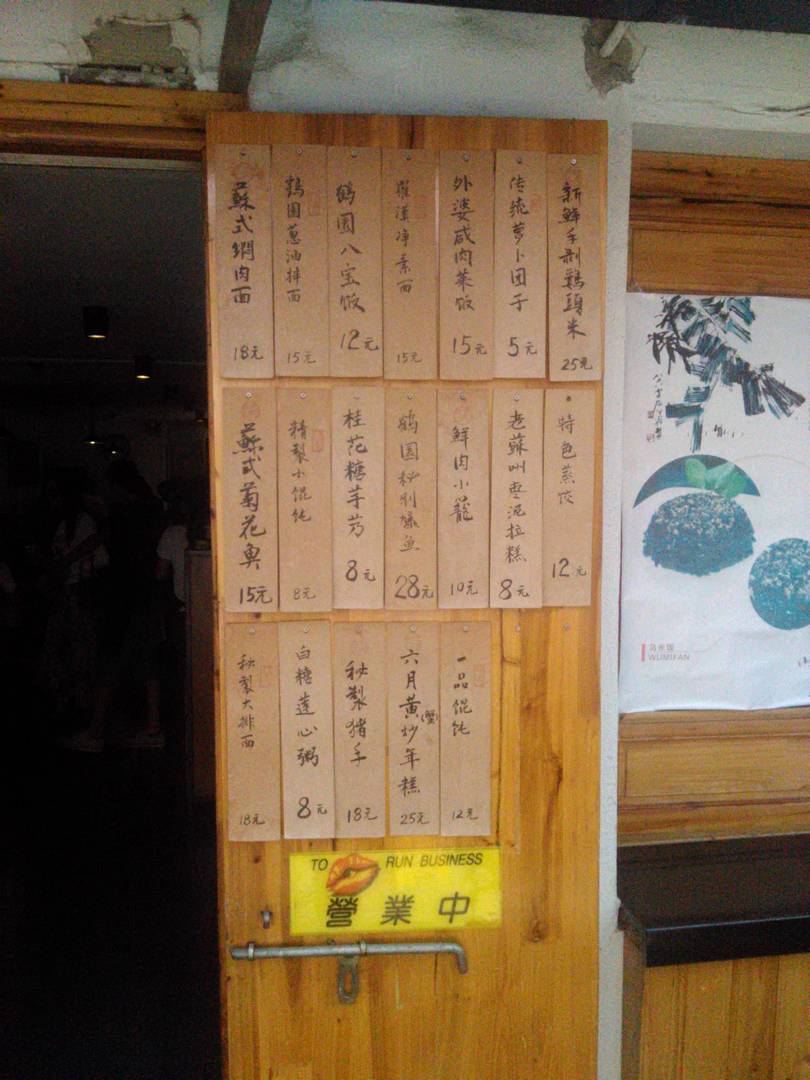 蘇式焖肉面
18元
鶴园蔥油拌面
15元
鶴园八宝饭
12元
羅漢净素面
15元
外婆咸肉菜饭
15元
传统萝卜团子
5元
新鲜手剥鷄頭米
25元
蘇式菊花魚
15元
精製小馄饨
8元
桂花糖芋艿
8元
鶴园秘制爊鱼
28元
鲜肉小籠
10元
老蘇州枣泥拉糕
8元
特色蒸饺
12元
秘製大排面
18元
白糖莲心粥
8元
秘製猪手
18元
六月黄(蟹)炒年糕
25元
一品馄饨
12元
TO RUN BUSINESS
營業中
乌米饭
WUMIFAN